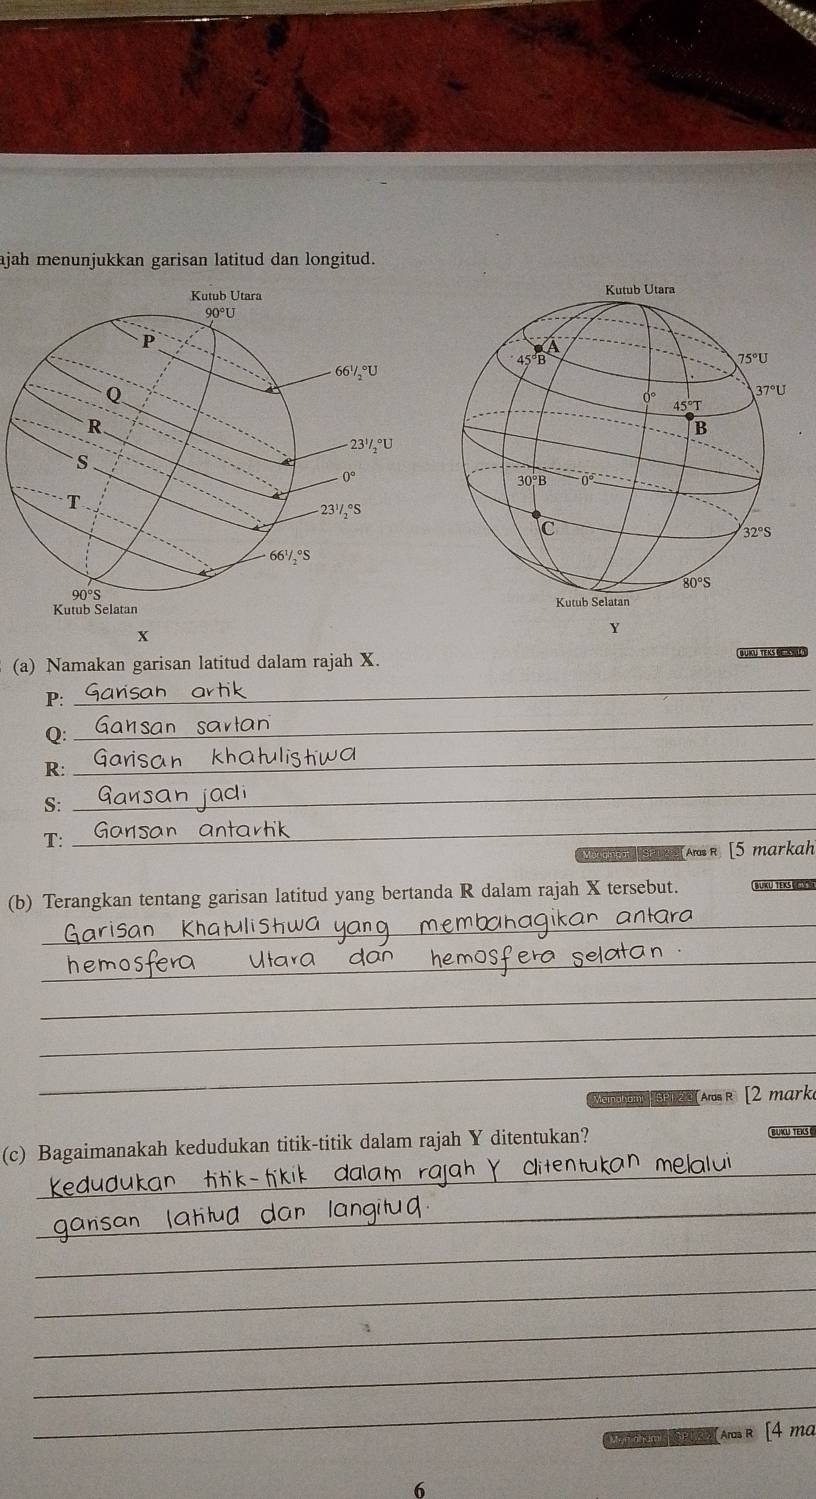 ajah menunjukkan garisan latitud dan longitud.
Kutub Utara
90°U
P
66¹/₂°U
Q
R
23¹/₂°U
S
0°
T
23¹/₂°S
66¹/₂°S
90°S
Kutub Selatan
X
Kutub Utara
A
45°B
75°U
0°
37°U
45°T
B
30°B
0°
C
32°S
80°S
Kutub Selatan
Y
(a) Namakan garisan latitud dalam rajah X.
BUKU TEKS
P: Garisan artik
Q: Garisan sartan
R: Garisan khatulistiwa
S: Garisan jadi
T: Garisan antartik
Aras R [5 markah
(b) Terangkan tentang garisan latitud yang bertanda R dalam rajah X tersebut.
BUKU TEKS
Garisan Khatulistiwa yang membahagikan antara
hemosfera Utara dan hemosfera selatan.
Memahami Aras R [2 marka
(c) Bagaimanakah kedudukan titik-titik dalam rajah Y ditentukan?
BUKU TEKS
Kedudukan titik-tikik dalam rajah Y ditentukan melalui
garisan latitud dan langitud.
Aras R [4 ma
6